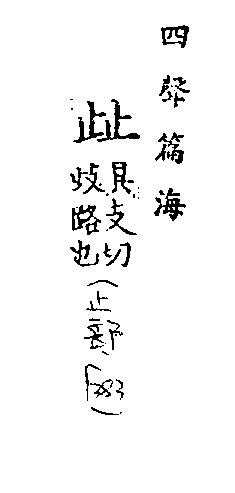 四聲篇海
具支切
歧路也
(止部